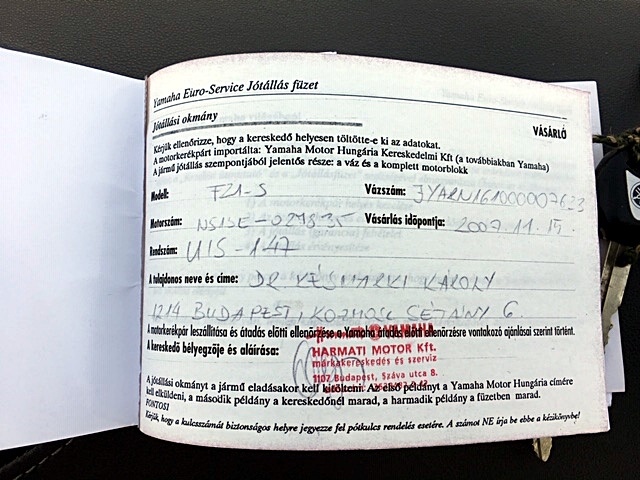 Yamaha Euro-Service Jótállás füzet
Jótállási okmány
VÁSÁRLÓ
Kérjük ellenőrizze, hogy a kereskedő helyesen töltötte-e ki az adatokat.
A motorkerékpárt importálta: Yamaha Motor Hungária Kereskedelmi Kft (a továbbiakban Yamaha)
A jármű jótállás szempontjából jelentős része: a váz és a komplett motorblokk
Modell: FZ1-S Vázszám: JYARN161000007623
Motorszám: Vásárlás időpontja: 2007.11.15.
Rendszám: UIS-147
A tulajdonos neve és címe: DR KÉSMÁRKI KÁROLY
1214 BUDAPEST, KOZMOSZ SÉTÁNY 6.
A motorkerékpár leszállítása és átadás előtti ellenőrzése a Yamaha átadás előtti ellenőrzésre vontakozó ajánlásai szerint történt.
A kereskedő bélyegzője és aláírása:
YAMAHA
HARMATI MOTOR Kft.
márkakereskedés és szerviz
1107 Budapest, Száva utca 8.
A jótállási okmányt a jármű eladásakor kell kitölteni. Az első példányt a Yamaha Motor Hungária címére
kell elküldeni, a második példány a kereskedőnél marad, a harmadik példány a füzetben marad.
FONTOS!
Kérjük, hogy a kulcsszámát biztonságos helyre jegyezze fel pótkulcs rendelés esetére. A számot NE írja be ebbe a kézikönyvbe!